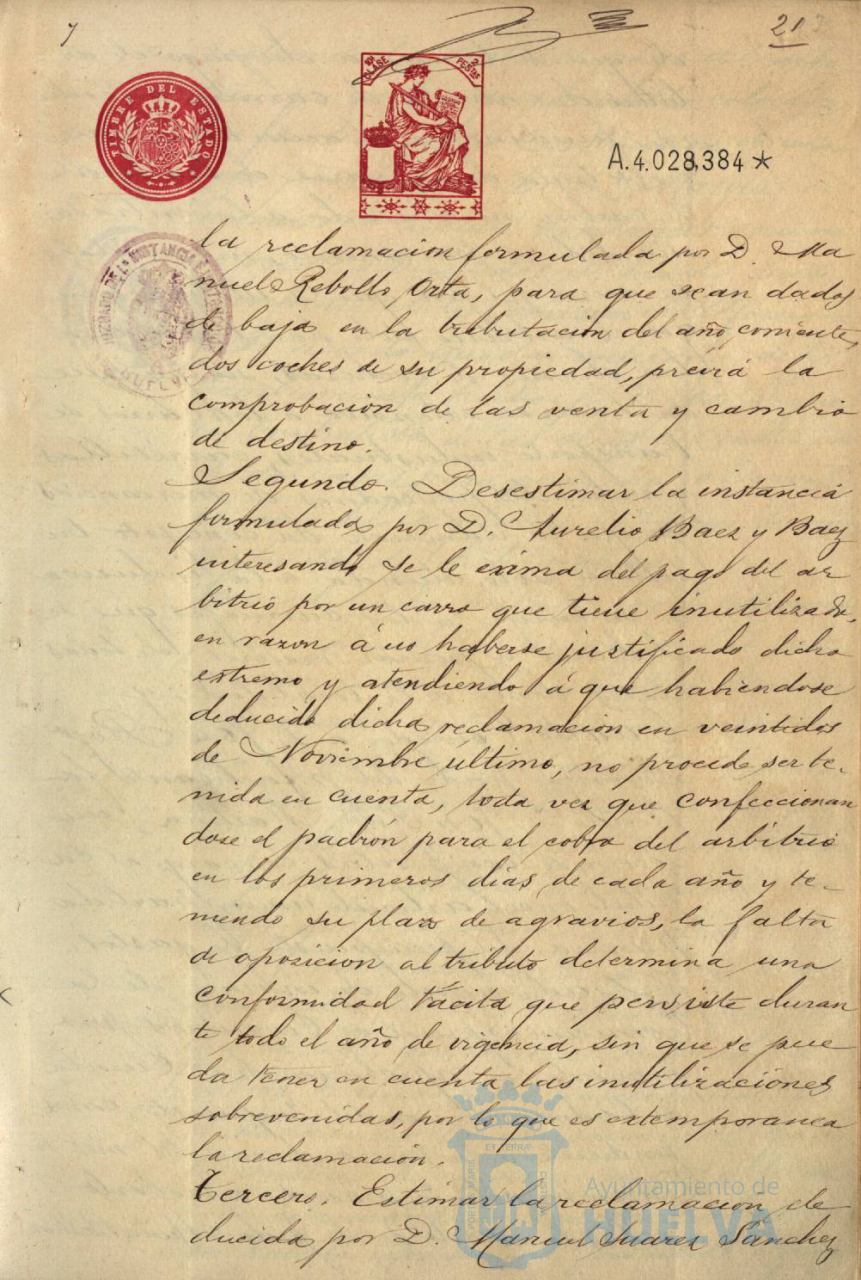 7
21
TIMBRE DEL ESTADO
CLASE
2 PESTAS
A.4.028,384 *
la reclamacion formulada por D. Ma
nuel Rebollo Orta, para que sean dados
de baja en la tributación del año corriente,
dos coches de su propiedad, previá la
comprobacion de las venta y cambio
de destino.
Segundo. Desestimar la instanciá
formulada por D. Aurelio Baez y Baez
interesando se le exima del pago del ar
bitrio por un carro que tiene inutilizado,
en razon á no haberse justificado dicho
extremo y atendiendo á que habiendose
deducido dicha reclamacion en veintidos
de Noviembre último, no procede ser te-
nida en cuenta, toda vez que confeccionan
dose el padrón para el cobro del arbitrio
en los primeros dias de cada año y te-
niendo su plazo de agravios, la falta
de oposicion al tributo determina una
conformidad tácita que persiste duran
te todo el año de vigencia, sin que se pue
da tener en cuenta las inutilizaciones
sobrevenidas, por lo que es extemporanea
la reclamación.
Tercero. Estimar la reclamacion de
ducida por D. Manuel Suarez Sanchez
Ayuntamiento de
HUELVA